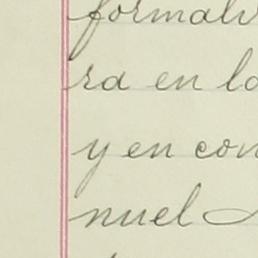 formali
ra en la
y en con
nuel